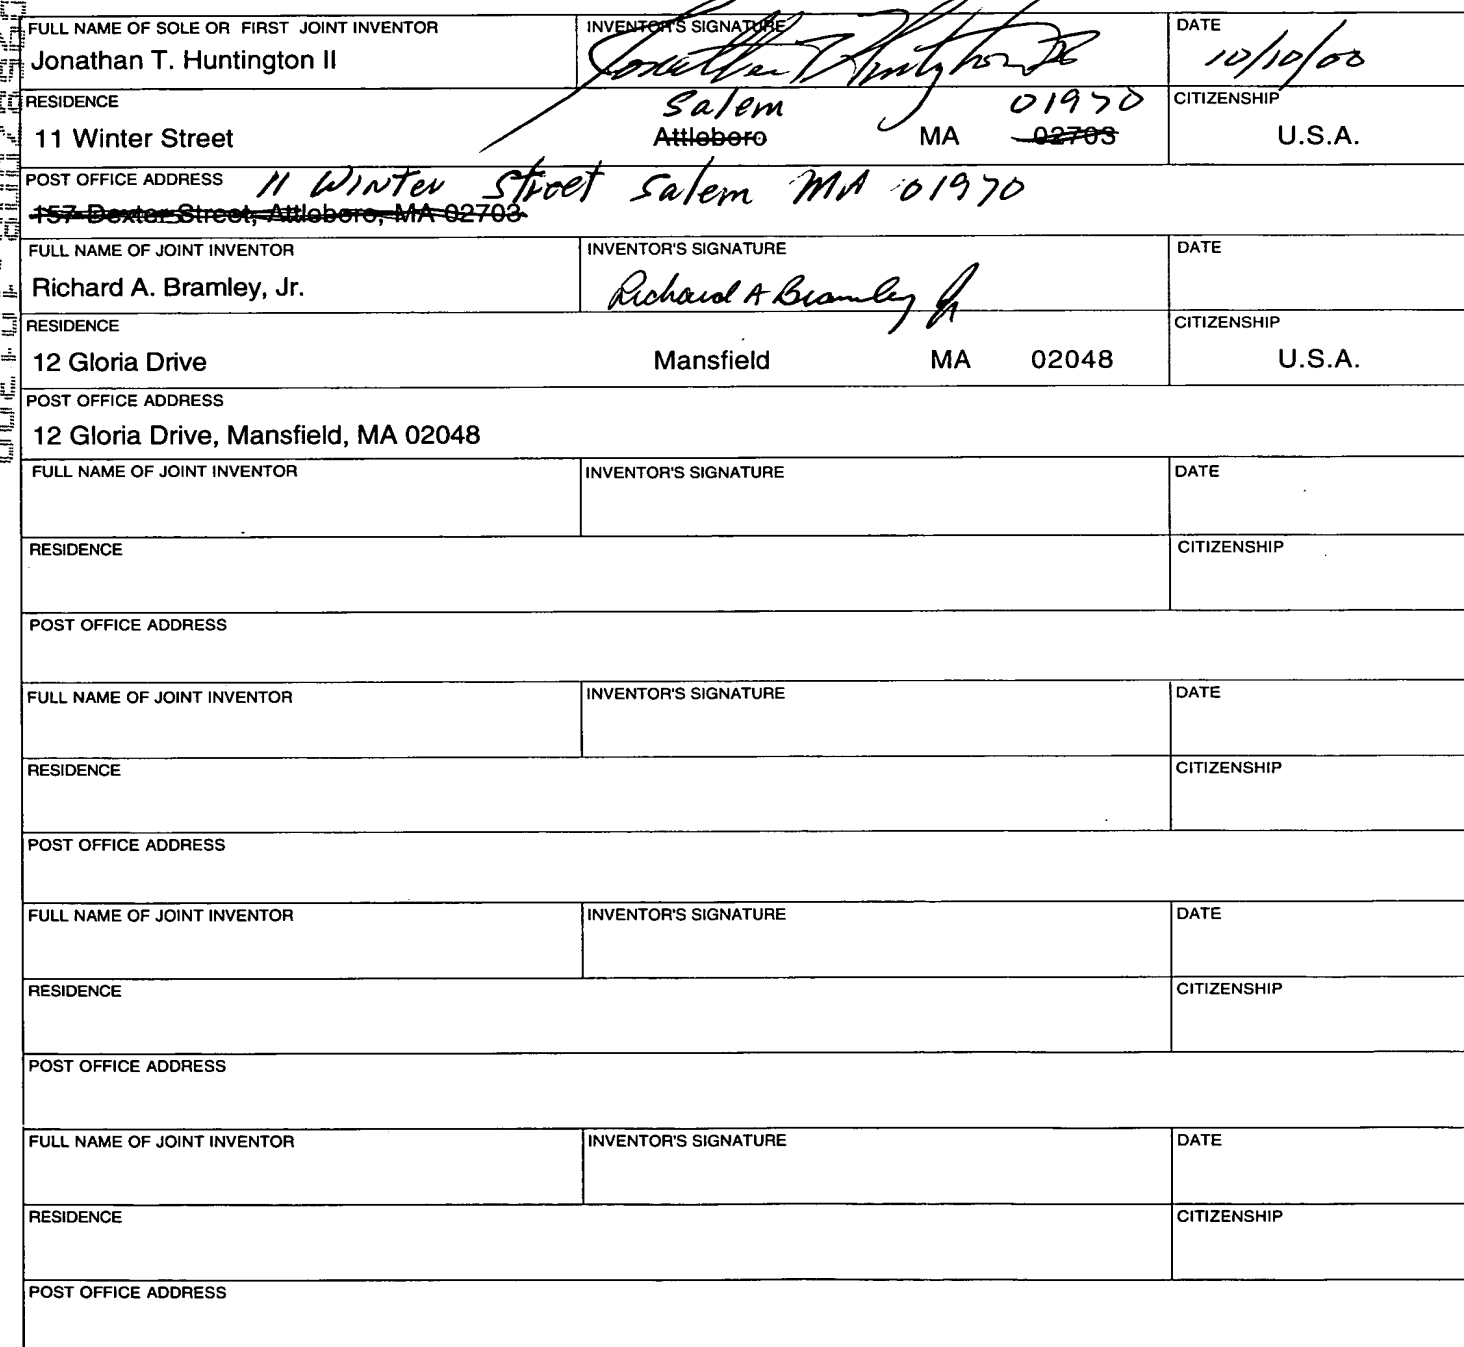 FULL NAME OF SOLE OR FIRST JOINT INVENTOR INVENTOR'S SIGNATURE DATE
Jonathan T. Huntington II Jonathan T Huntington II 10/10/00
RESIDENCE Salem 01970 CITIZENSHIP
11 Winter Street Attleboro MA 02703 U.S.A.
POST OFFICE ADDRESS 11 Winter Street Salem MA 01970
157 Dexter Street, Attleboro, MA 02703
FULL NAME OF JOINT INVENTOR INVENTOR'S SIGNATURE DATE
Richard A. Bramley, Jr. Richard A Bramley Jr
RESIDENCE CITIZENSHIP
12 Gloria Drive Mansfield MA 02048 U.S.A.
POST OFFICE ADDRESS
12 Gloria Drive, Mansfield, MA 02048
FULL NAME OF JOINT INVENTOR INVENTOR'S SIGNATURE DATE
RESIDENCE CITIZENSHIP
POST OFFICE ADDRESS
FULL NAME OF JOINT INVENTOR INVENTOR'S SIGNATURE DATE
RESIDENCE CITIZENSHIP
POST OFFICE ADDRESS
FULL NAME OF JOINT INVENTOR INVENTOR'S SIGNATURE DATE
RESIDENCE CITIZENSHIP
POST OFFICE ADDRESS
FULL NAME OF JOINT INVENTOR INVENTOR'S SIGNATURE DATE
RESIDENCE CITIZENSHIP
POST OFFICE ADDRESS